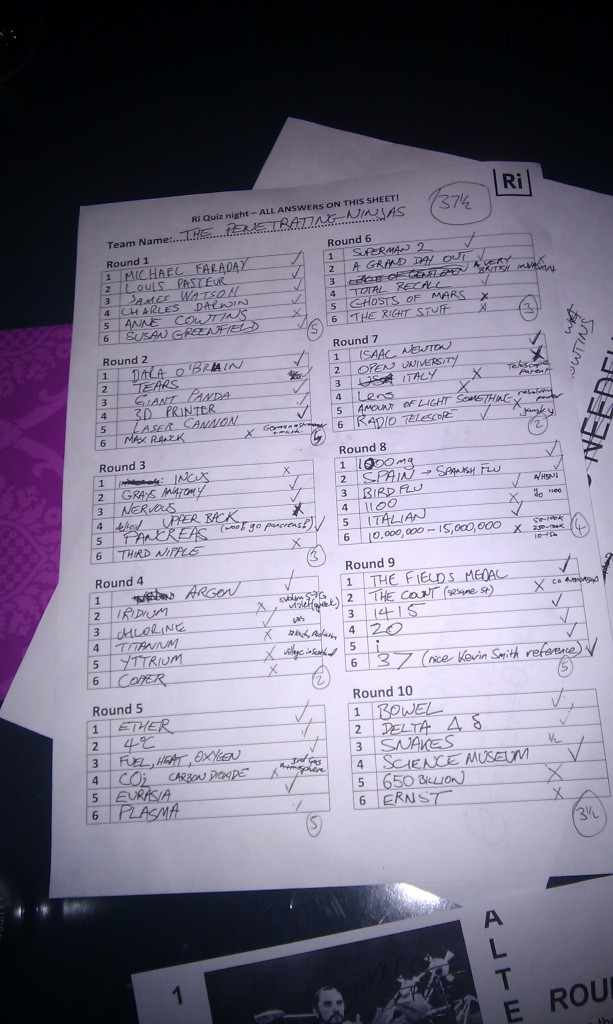 Ri
Ri Quiz night – ALL ANSWERS ON THIS SHEET!
37½
Team Name: THE PENETRATING NINJAS
Round 1
1 MICHAEL FARADAY
2 LOUIS PASTEUR
3 JAMES WATSON
4 CHARLES DARWIN
5 ANNE COWTINS
6 SUSAN GREENFIELD
5
Round 2
1 DARA O'BRAIN
2 TEARS
3 GIANT PANDA
4 3D PRINTER
5 LASER CANNON
6 MAX PLANCK
Round 3
1 INCUS
2 GRAYS ANATOMY
3 NERVOUS
4 UPPER BACK
5 PANCREAS (woot go pancreas!)
6 THIRD NIPPLE
3
Round 4
1 ARGON
2 IRIDIUM
3 CHLORINE
4 TITANIUM
5 YTTRIUM
6 COPPER
2
Round 5
1 ETHER
2 4°C
3 FUEL, HEAT, OXYGEN
4 CO2 CARBON DIOXIDE 3rd gas atmosphere
5 EURASIA
6 PLASMA
5
Round 6
1 SUPERMAN 2
2 A GRAND DAY OUT
3 A VERY BRITISH INVASION
4 TOTAL RECALL
5 GHOSTS OF MARS
6 THE RIGHT STUFF
3
Round 7
1 ISAAC NEWTON
2 OPEN UNIVERSITY
3 ITALY
4 Lens
5 AMOUNT OF LIGHT SOMETHING
6 RADIO TELESCOPE
2
Round 8
1 1000mg
2 SPAIN → SPANISH FLU
3 BIRD FLU
4 1100
5 ITALIAN
6 10,000,000 – 15,000,000
4
Round 9
1 THE FIELDS MEDAL
2 THE COUNT (sesame st)
3 1415
4 20
5 i
6 37 (nice Kevin Smith reference)
5
Round 10
1 BOWEL
2 DELTA Δ δ
3 SNAKES ½
4 SCIENCE MUSEUM
5 650 BILLION
6 ERNST
3½
NEED
1
ALTE
ROU